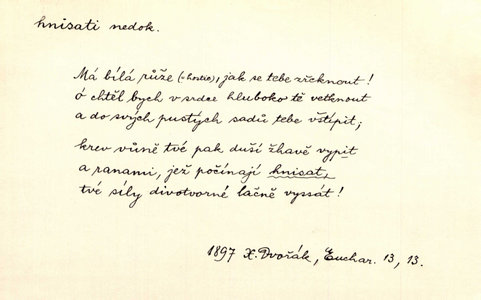 hnisati nedok.
Má bílá růže (=hostie), jak se tebe zřeknout!
ó chtěl bych v srdce hluboko tě vetknout
a do svých pustých sadů tebe vštípit;
krev vůně tvé pak duší žhavě vypit
a ranami, jež počínají hnisat,
tvé síly divotvorné lačně vyssát!
1897 X. Dvořák, Euchar. 13, 13.